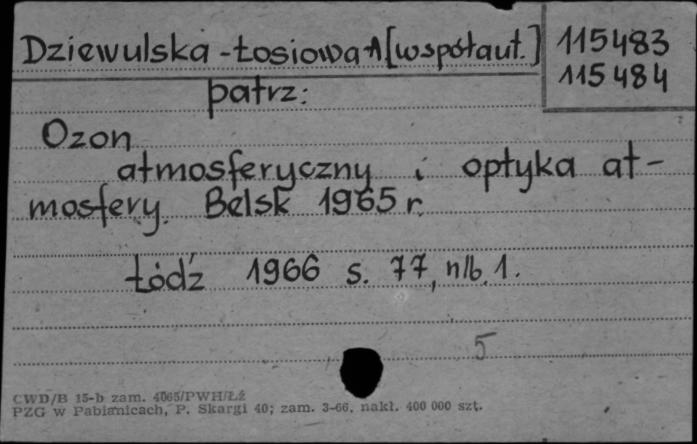 Dziewulska-Łosiowa A [współaut.]
115483
115484
patrz:
Ozon
atmosferyczny i optyka at-
mosfery. Belsk 1965 r.
Łódź 1966 s. 77, nlb. 1.
5
CWD/B 15-b zam. 4065/PWH/Łź
PZG w Pabianicach, P. Skargi 40; zam. 3-66, nakł. 400 000 szt.